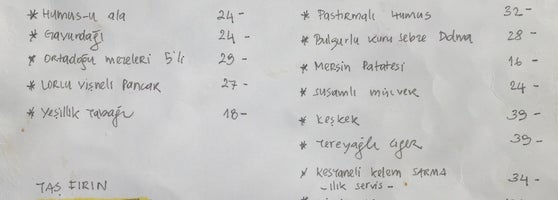 * Humus-u ala 24-
* Gavurdağı 24-
* ortadoğu mezeleri 5'li 29-
* Lorlu vişneli Pancar 27-
* Yeşillik Tabağı 18-
TAŞ FIRIN
* Pastırmalı Humus 32-
* Bulgurlu kuru sebze Dolma 28-
* Mersin Patatesi 16-
* susamlı mücver 24-
* Keşkek 39-
* Tereyağlı ciğer 39-
* Kestaneli kelem SARMA 34-
- ılık servis -